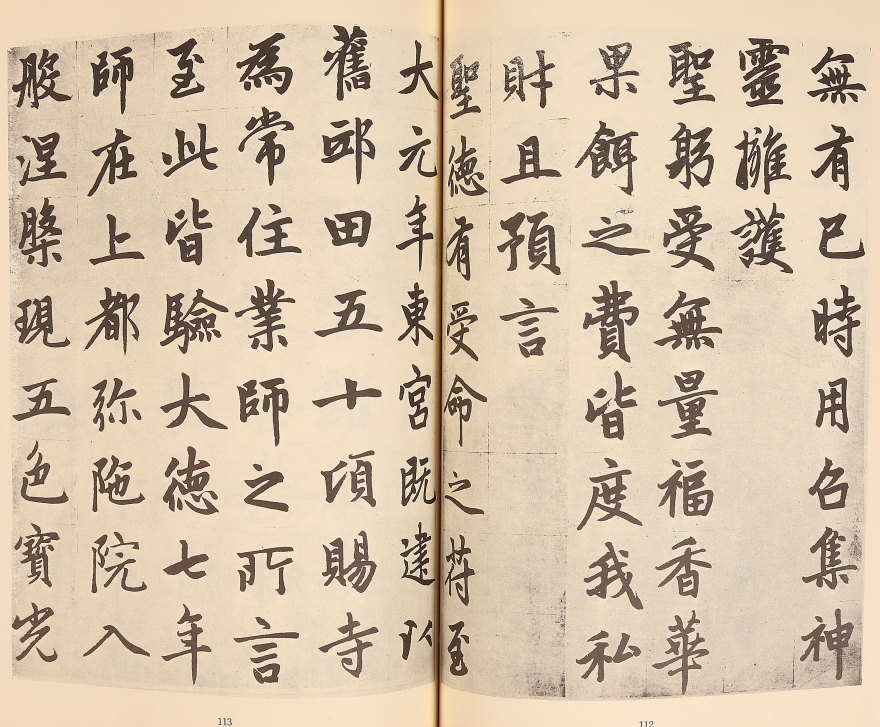 無有已時用召集神
靈擁護
聖躬受無量福香華
果餌之費皆度我私
財且預言
聖德有受命之符至
112
大元年東宮既建以
舊邸田五十頃賜寺
為常住業師之所言
至此皆驗大德七年
師在上都弥陁院入
般涅槃現五色寶光
113